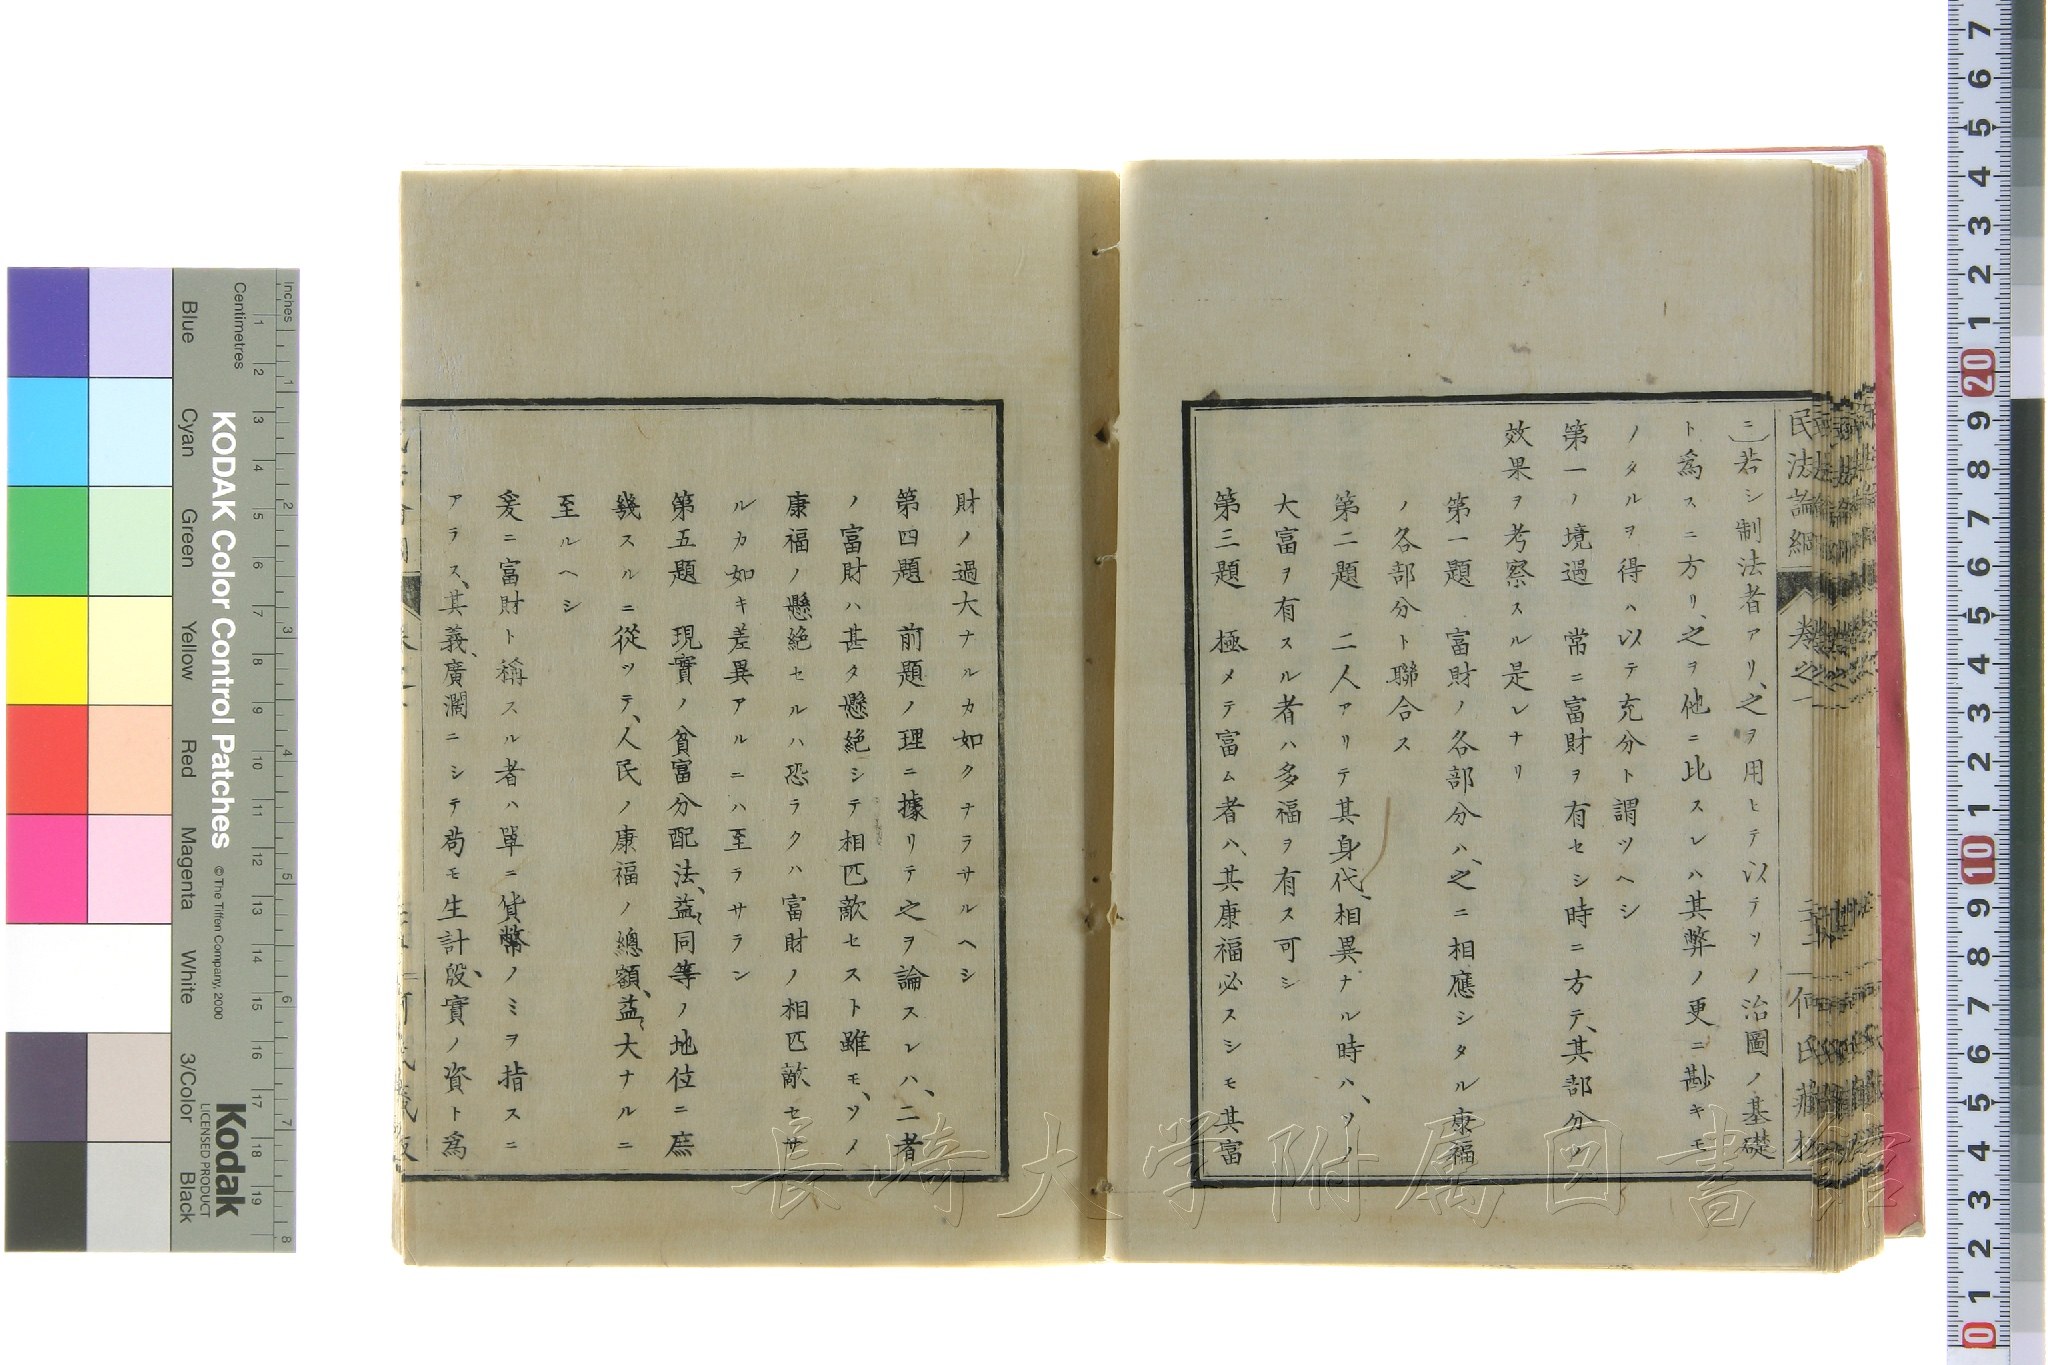 民法論綱 卷之一 何氏藏板
ニ)若シ制法者アリ、之ヲ用ヒテ以テソノ治圖ノ基礎
ト爲スニ方リ、之ヲ他ニ比スレハ其弊ノ更ニ尠キモ
ノタルヲ得ハ以テ充分ト謂ツヘシ
第一ノ境過 常ニ富財ヲ有セシ時ニ方テ、其部分ノ
效果ヲ考察スル是レナリ
第一題 富財ノ各部分ハ、之ニ相應シタル康福
ノ各部分ト聯合ス
第二題 二人アリテ其身代、相異ナル時ハ、ソノ
大富ヲ有スル者ハ多福ヲ有ス可シ
第三題 極メテ富ム者ハ、其康福必スシモ其富
財ノ過大ナルカ如クナラサルヘシ
第四題 前題ノ理ニ據リテ之ヲ論スレハ、二者
ノ富財ハ甚タ懸絶シテ相匹敵セスト雖モ、ソノ
康福ノ懸絶セルハ恐ラクハ富財ノ相匹敵セサ
ルカ如キ差異アルニハ至ラサラン
第五題 現實ノ貧富分配法、益〻同等ノ地位ニ庶
幾スルニ從ツテ、人民ノ康福ノ總額、益〻大ナルニ
至ルヘシ
爰ニ富財ト稱スル者ハ單ニ貨幣ノミヲ指スニ
アラス、其義、廣濶ニシテ苟モ生計、殷實ノ資ト爲
KODAK Color Control Patches
© The Tiffen Company, 2000
Kodak
LICENSED PRODUCT
Inches
Centimetres
Blue
Cyan
Green
Yellow
Red
Magenta
White
3/Color
Black
長崎大学附属図書館